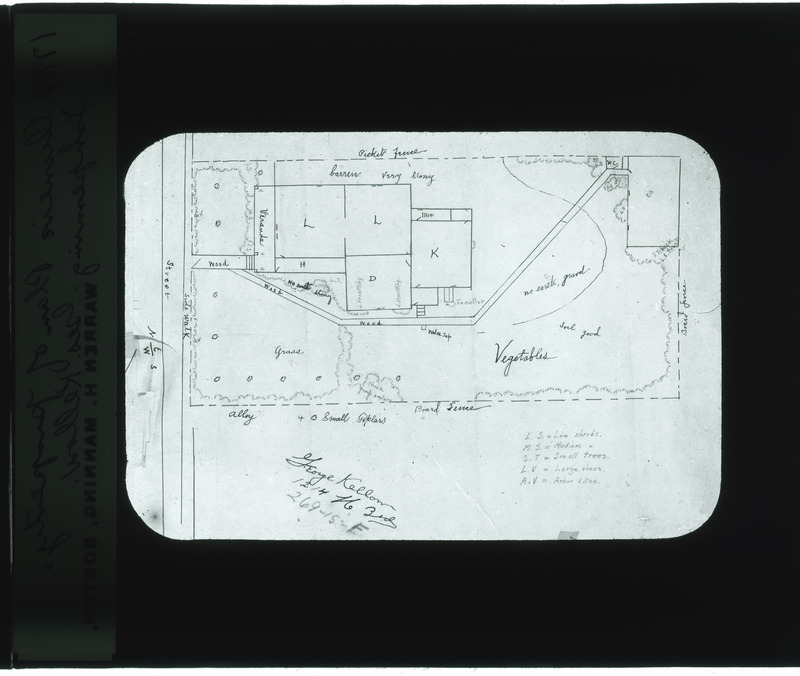 Picket Fence
barren Very Stony
W.C.
Veranda
L
L
K
S
Street
Wood
H
D
no earth stony
Wood
no earth, gravel
Side Walk
Wood
Water Tap
Soil good
Board fence
N E
W S
Grass
Vegetables
Alley
+ o Small Poplars
Board Fence
George Kellow
1214 N. 3rd
269-15-F
L. S. = Low shrubs.
M. S. = Medium "
S. T = Small trees.
L. V = Large vines.
A. V = Arbor Vitae.
WARREN H. MANNING, BOSTON.